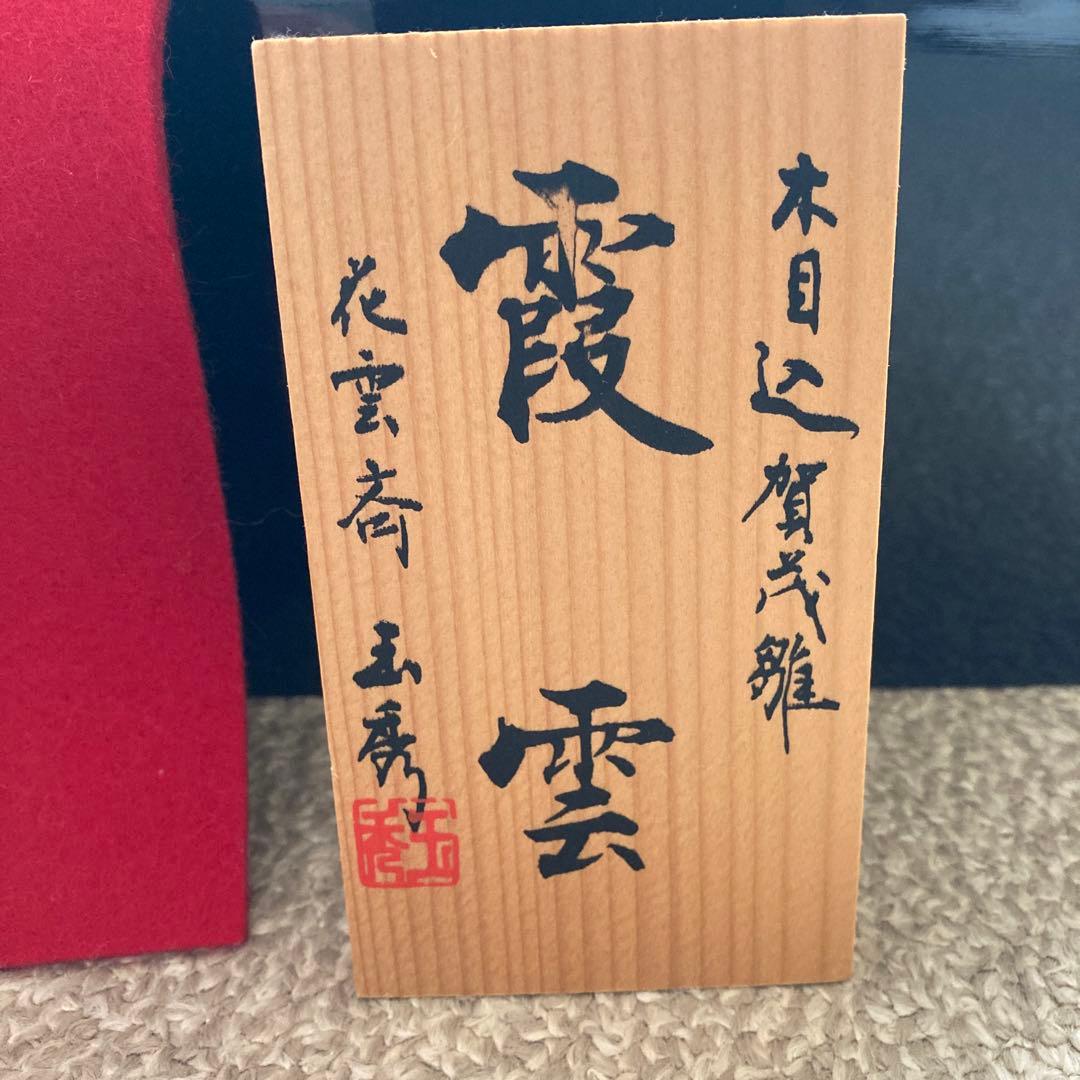 木目込賀茂雛
霞雲
花雲斎 玉秀
玉秀